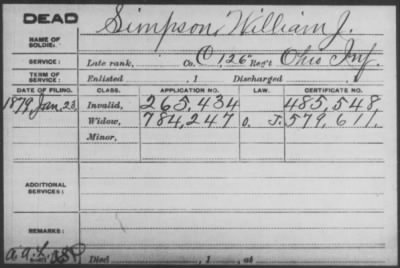 DEAD
NAME OF SOLDIER: Simpson, William J.
SERVICE: Late rank, Co. C 126" Reg't Ohio Inf.
TERM OF SERVICE: Enlisted , 1 Discharged , 1
DATE OF FILING. CLASS. APPLICATION NO. LAW. CERTIFICATE NO.
1879, Jan. 23. Invalid, 265,434 485,548
Widow, 784,247 O. J. 579,611.
Minor,
ADDITIONAL SERVICES:
REMARKS:
Died , 1 , at